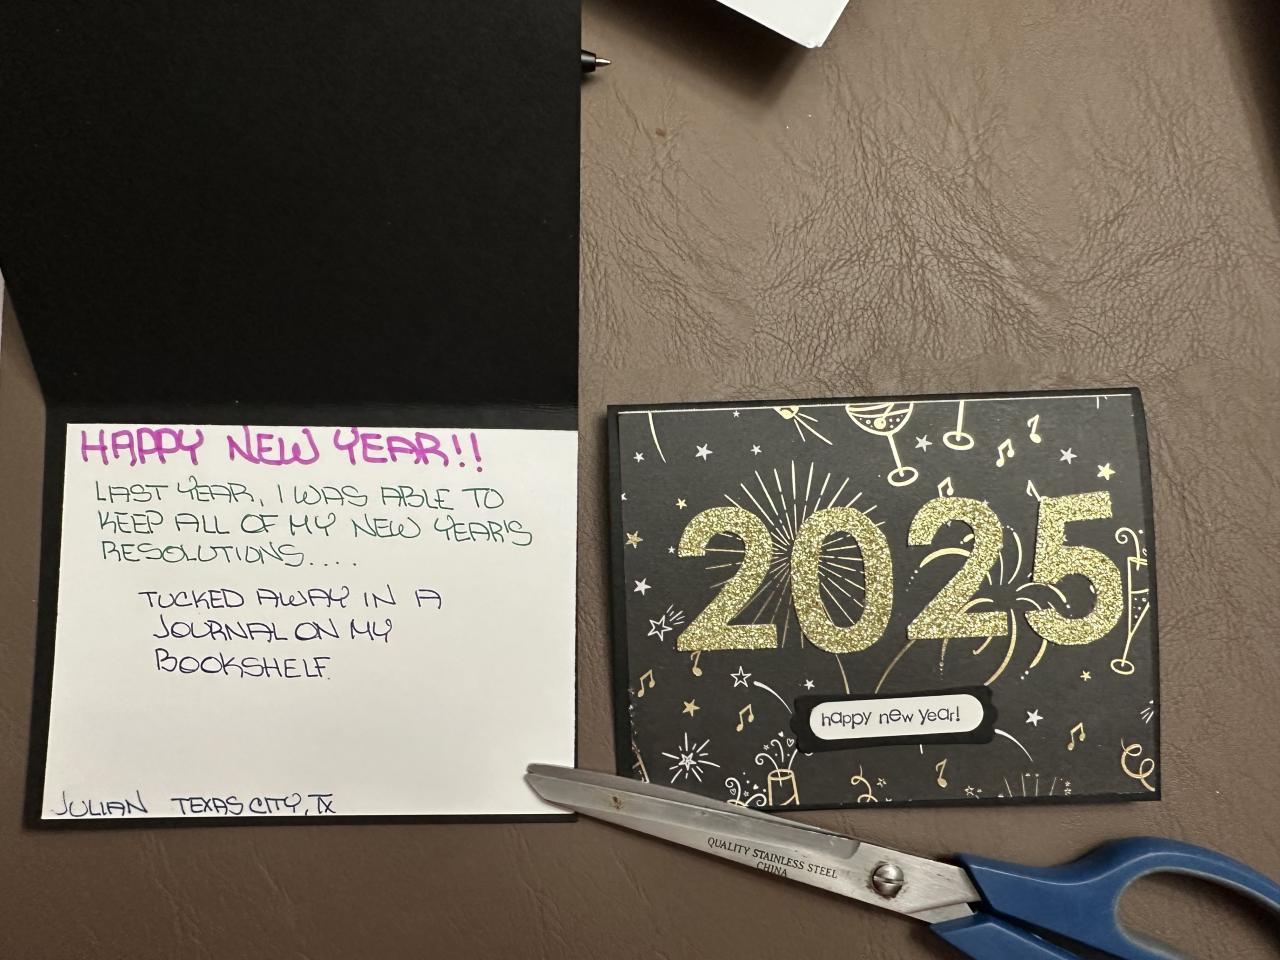 HAPPY NEW YEAR!!
LAST YEAR, I WAS ABLE TO
KEEP ALL OF MY NEW YEAR'S
RESOLUTIONS....
TUCKED AWAY IN A
JOURNAL ON MY
BOOKSHELF.
JULIAN TEXAS CITY, TX
2025
happy new year!
QUALITY STAINLESS STEEL
CHINA